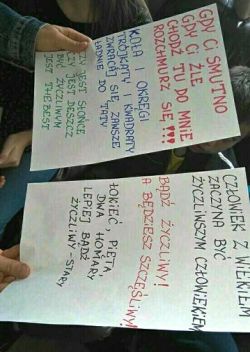 GDY CI SMUTNO
GDY CI ŹLE
CHODŹ TU DO MNIE
ROZCHMURZ SIĘ!!!
KOŁA I OKRĘGI
TRÓJKĄTY I KWADRATY
ZWRACAJ SIĘ ZAWSZE
ŁADNIE DO TATY
CZY JEST SŁOŃCE
CZY JEST DESZCZ
BYĆ ŻYCZLIWYM
JEST THE BEST
CZŁOWIEK Z WIEKIEM
ZACZYNA BYĆ
ŻYCZLIWSZYM CZŁOWIEKIEM
BĄDŹ ŻYCZLIWY!
A BĘDZIESZ SZCZĘŚLIWY!
ŁOKIEĆ, PIĘTA,
DWA HOMARY
LEPIEJ BĄDŹ
ŻYCZLIWY STARY